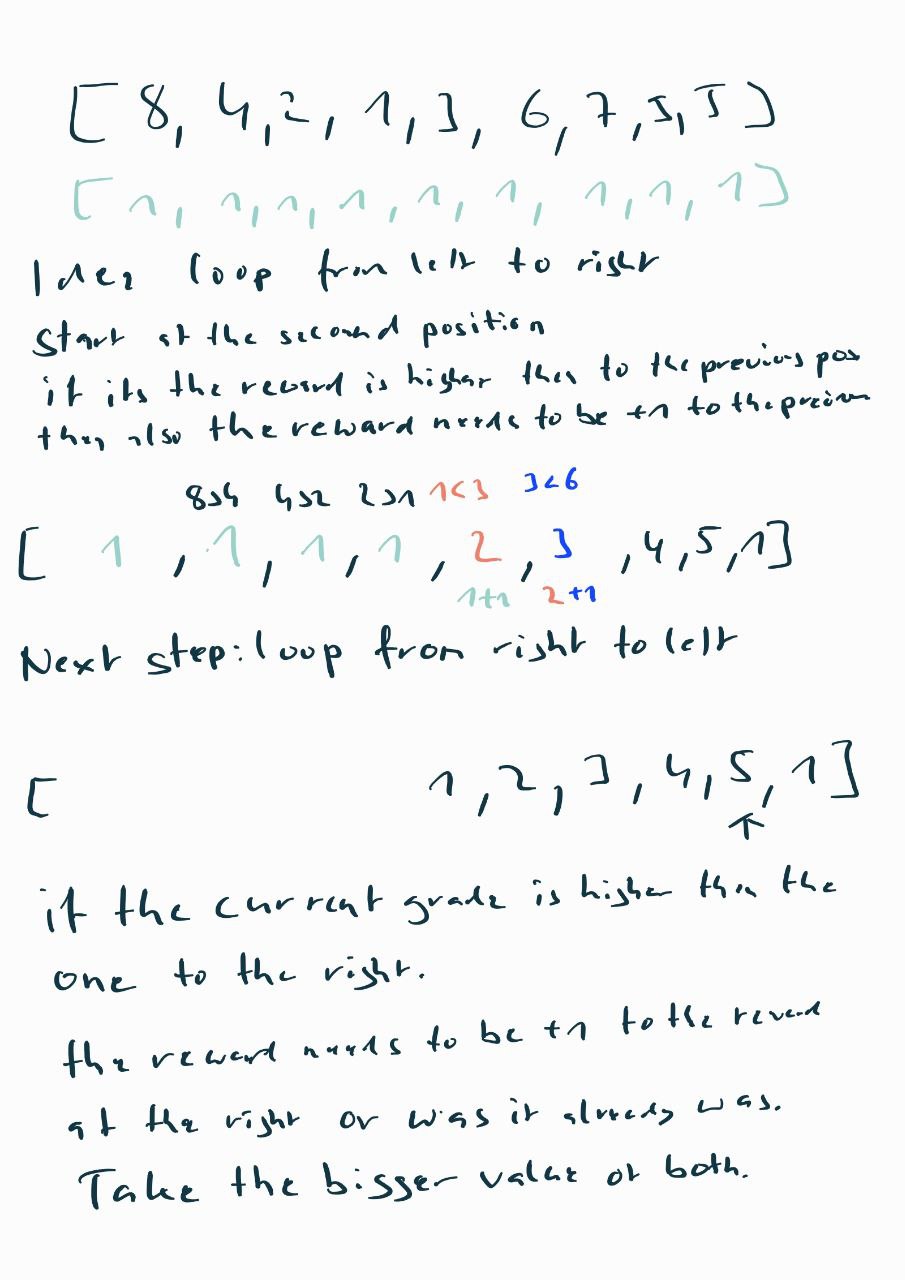 [8, 4, 2, 1, 3, 6, 7, 5, 5]
[1, 1, 1, 1, 1, 1, 1, 1, 1]
Idea loop from left to right
Start at the second position
if its the reward is higher then to the previous pos
then also the reward needs to be +1 to the previous
8>4 4>2 2>1 1<3 3<6
[1, 1, 1, 1, 2, 3, 4, 5, 1]
1+1 2+1
Next step: loop from right to left
[ 1, 2, 3, 4, 5, 1]
↑
if the current grade is higher than the
one to the right.
the reward needs to be +1 to the reward
at the right or was it already was.
Take the bigger value of both.